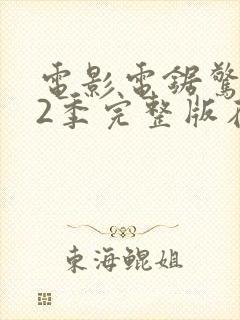 電影電鋸驚
2季完整版在
東海鯤姐